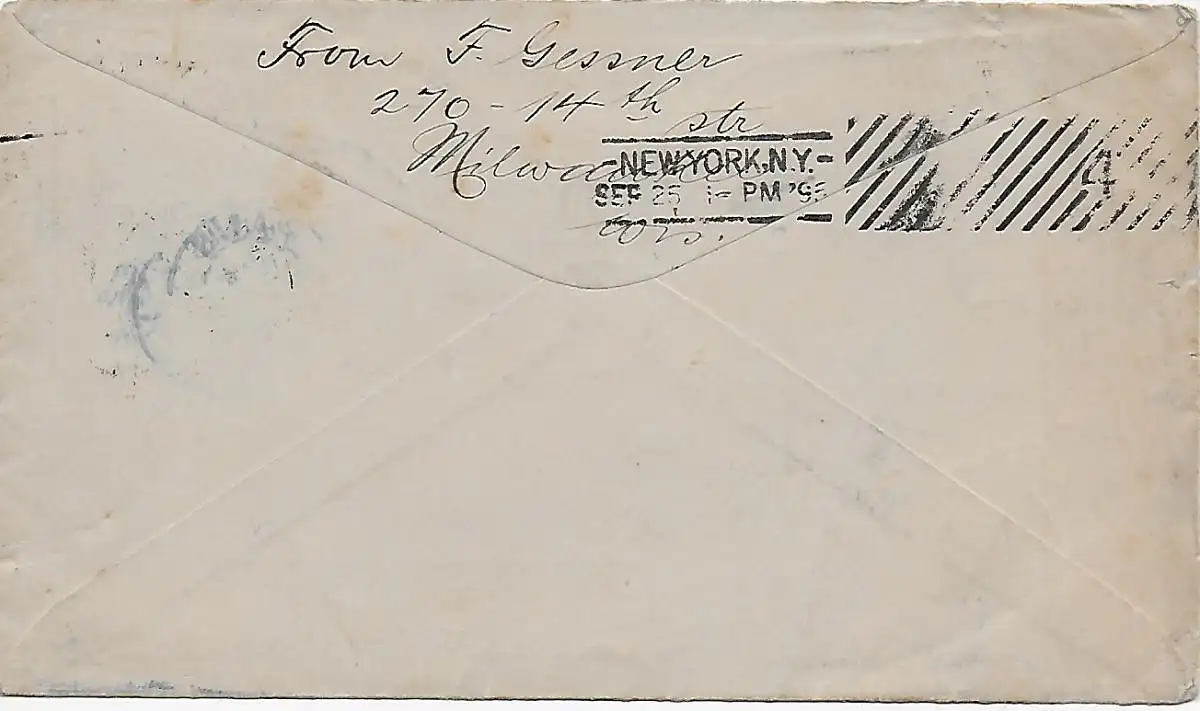 From F. Gessner
270 - 14th
str
Milwaukee
Wis.
-NEW YORK, N.Y.-
SEP 25 1- PM '95
4